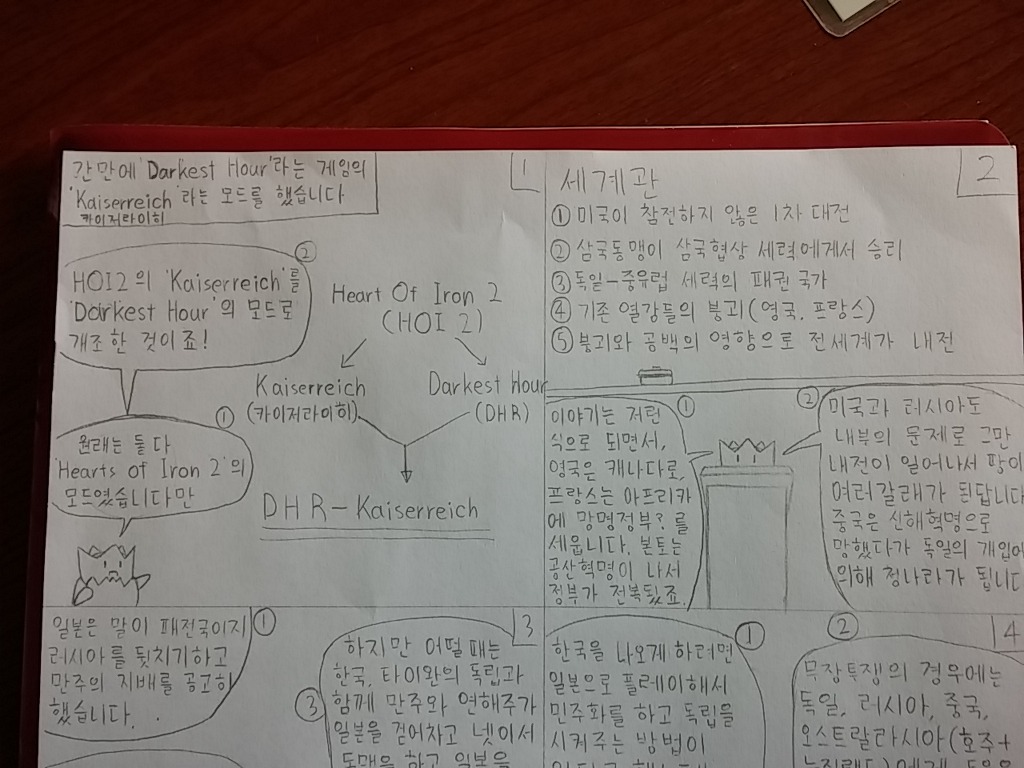 간만에 'Darkest Hour'라는 게임의
'Kaiserreich'라는 모드를 했습니다
카이저라이히
1
②
HOI2의 'Kaiserreich'를
'Darkest Hour'의 모드로
개조한 것이죠!
①
원래는 둘 다
'Hearts of Iron 2'의
모드였습니다만
Heart Of Iron 2
(HOI 2)
Kaiserreich
(카이저라이히)
Darkest Hour
(DHR)
DHR-Kaiserreich
2
세계관
① 미국이 참전하지 않은 1차 대전
② 삼국동맹이 삼국협상 세력에게서 승리
③ 독일-중유럽 세력의 패권 국가
④ 기존 열강들의 붕괴(영국, 프랑스)
⑤ 붕괴와 공백의 영향으로 전세계가 내전
①
이야기는 저런
식으로 되면서,
영국은 캐나다로,
프랑스는 아프리카
에 망명정부?를
세웁니다. 본토는
공산혁명이 나서
정부가 전복됐죠.
②
미국과 러시아도
내부의 문제로 그만
내전이 일어나서
여러갈래가 된답니다
중국은 신해혁명으로
망했다가 독일의 개입에
의해 청나라가 됩니다
3
①
일본은 말이 패전국이지
러시아를 뒷치기하고
만주의 지배를 공고히
했습니다..
③
하지만 어떨 때는
한국, 타이완의 독립과
함께 만주와 연해주가
일본을 걷어차고 넷이서
동맹을 하고 일본을
4
①
한국을 나오게 하려면
일본으로 플레이해서
민주화를 하고 독립을
시켜주는 방법이
②
무장투쟁의 경우에는
독일, 러시아, 중국,
오스트랄라시아(호주+
뉴질랜드)에게